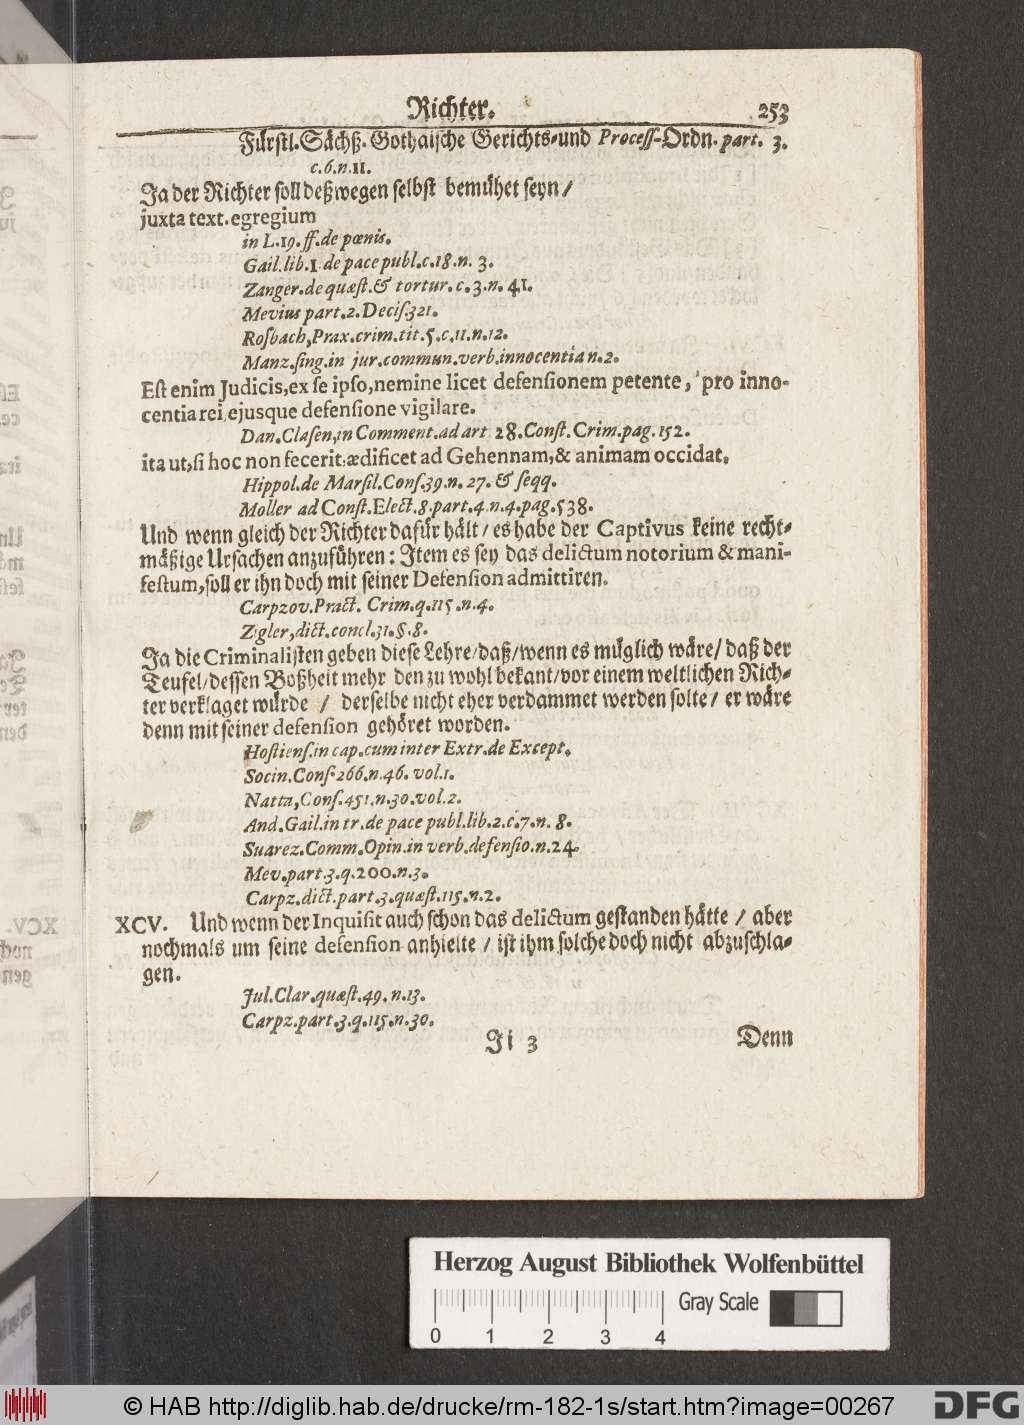 Richter. 253
Fürstl. Sächß. Gothaische Gerichts-und Process-Ordn. part. 3.
c. 6. n. 11.
Ja der Richter soll deßwegen selbst bemühet seyn /
juxta text. egregium
in L. 19. ff. de pœnis.
Gail. lib. 1 de pace publ. c. 18. n. 3.
Zanger. de quæst. & tortur. c. 3. n. 41.
Mevius part. 2. Decis. 321.
Rosbach, Prax. crim. tit. 5. c. 11. n. 12.
Manz. sing. in jur. commun. verb. innocentia n. 2.
Est enim Judicis, ex se ipso, nemine licet defensionem petente, pro inno-
centia rei, ejusque defensione vigilare.
Dan. Clasen, in Comment. ad art 28. Const. Crim. pag. 152.
ita ut, si hoc non fecerit, ædificet ad Gehennam, & animam occidat.
Hippol. de Marsil. Cons. 39. n. 27. & seqq.
Moller ad Const. Elect. 8. part. 4. n. 4. pag. 538.
Und wenn gleich der Richter dafür hält / es habe der Captivus keine recht-
mäßige Ursachen anzuführen: Item es sey das delictum notorium & mani-
festum, soll er ihn doch mit seiner Defension admittiren.
Carpzov. Pract. Crim. q. 115. n. 4.
Zigler, dict. concl. 31. §. 8.
Ja die Criminalisten geben diese Lehre / daß / wenn es müglich wäre / daß der
Teufel / dessen Boßheit mehr den zu wohl bekant / vor einem weltlichen Rich-
ter verklaget würde / derselbe nicht eher verdammet werden solte / er wäre
denn mit seiner defension gehöret worden.
Hostiens. in cap. cum inter Extr. de Except.
Socin. Cons. 266. n. 46. vol. 1.
Natta, Cons. 451. n. 30. vol. 2.
And. Gail. in tr. de pace publ. lib. 2. c. 7. n. 8.
Suarez. Comm. Opin. in verb. defensio. n. 24.
Mev. part. 3. q. 200. n. 3.
Carpz. dict. part. 3. quæst. 115. n. 2.
XCV. Und wenn der Inquisit auch schon das delictum gestanden hätte / aber
nochmals um seine defension anhielte / ist ihm solche doch nicht abzuschla-
gen.
Jul. Clar. quæst. 49. n. 13.
Carpz. part. 3. q. 115. n. 30.
Ji 3 Denn
Herzog August Bibliothek Wolfenbüttel
Gray Scale
0 1 2 3 4
© HAB http://diglib.hab.de/drucke/rm-182-1s/start.htm?image=00267
DFG